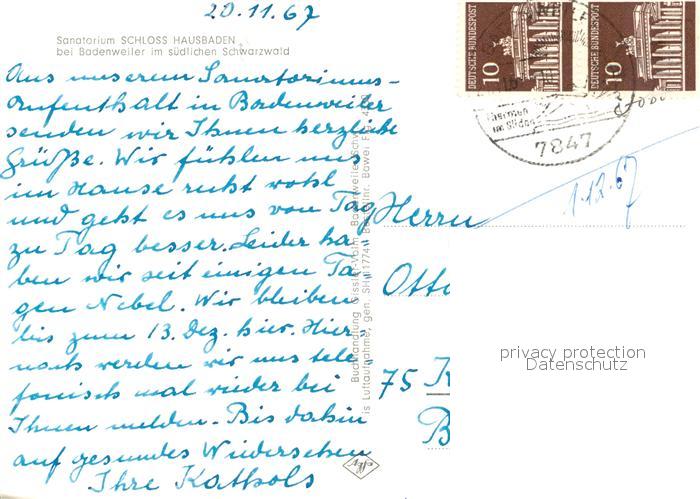 20.11.67
Sanatorium SCHLOSS HAUSBADEN
bei Badenweiler im südlichen Schwarzwald
Aus unserem Sanatoriums-
aufenthalt in Badenweiler
senden wir Ihnen herzliche
Grüße. Wir fühlen uns
im Hause recht wohl
und geht es uns von Tag
zu Tag besser. Leider ha-
ben wir seit einigen Ta-
gen Nebel. Wir bleiben
bis zum 13. Dez. hier. Hier-
nach werden wir uns tele-
fonisch mal wieder bei
Ihnen melden. Bis dahin
auf gesundes Wiedersehen
Ihre
Buchhandlung Gissler-Volm, Badenweiler
is Luftaufnahme, gen.
DEUTSCHE BUNDESPOST
10
DEUTSCHE BUNDESPOST
10
7847
1.12.67
Herrn
Otto
75 K
B
privacy protection
Datenschutz